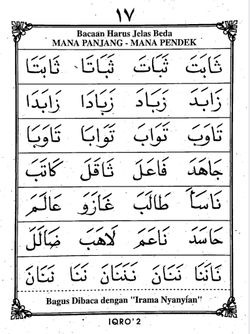 ١٧
Bacaan Harus Jelas Beda
MANA PANJANG - MANA PENDEK
ثَابَتَ ثَبَاتَ ثَبَاتَا ثَابَتَا
زَابَدَ زَبَادَ زَبَادَا زَابَدَا
تَاوَبَ تَوَابَ تَوَابَا تَاوَبَا
جَاهَدَ فَاعَلَ ثَاقَلَ كَاتَبَ
نَاسَاً طَالَبَ غَازَوَ عَالَمَ
حَاسَدَ نَاعَمَ لَاهَبَ ضَالَلَ
نَانَنَا نَنَانَ نَنَنَانَ نَنَا نَنَانَ
Bagus Dibaca dengan "Irama Nyanyian"
IQRO'2